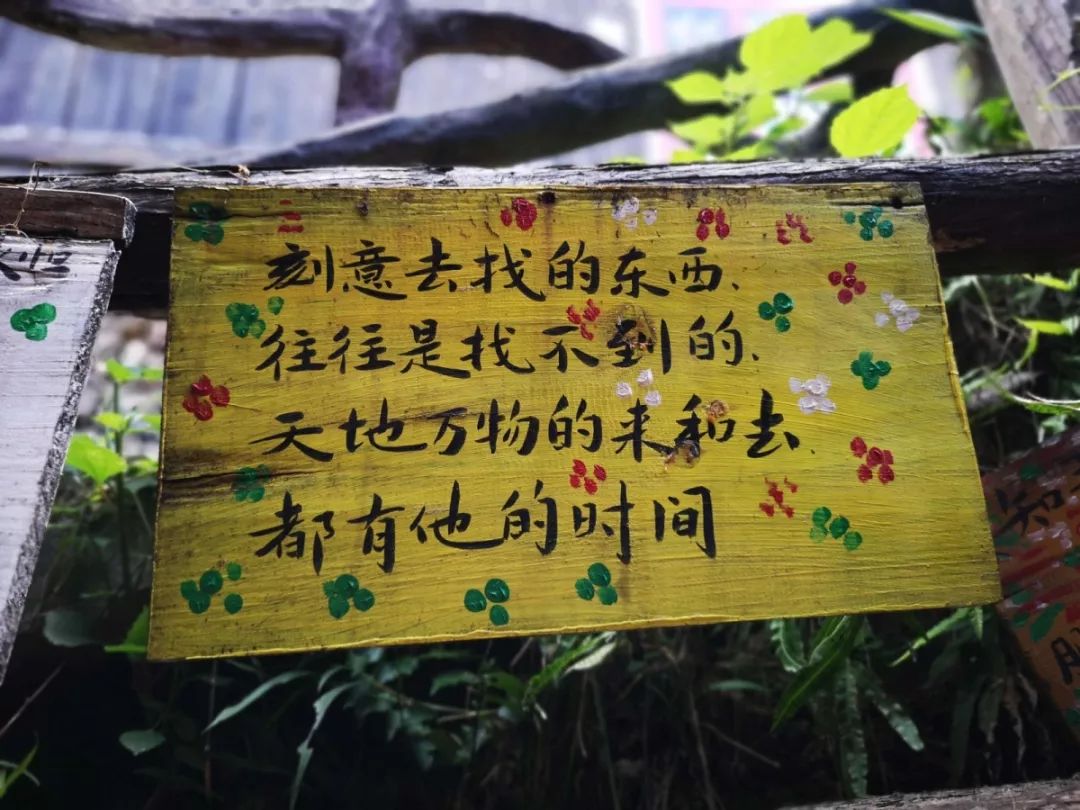 刻意去找的东西、
往往是找不到的、
天地万物的来和去、
都有他的时间
知